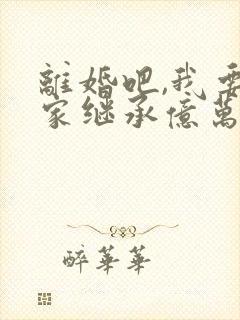 離婚吧,我要
家继承億萬
醉華華